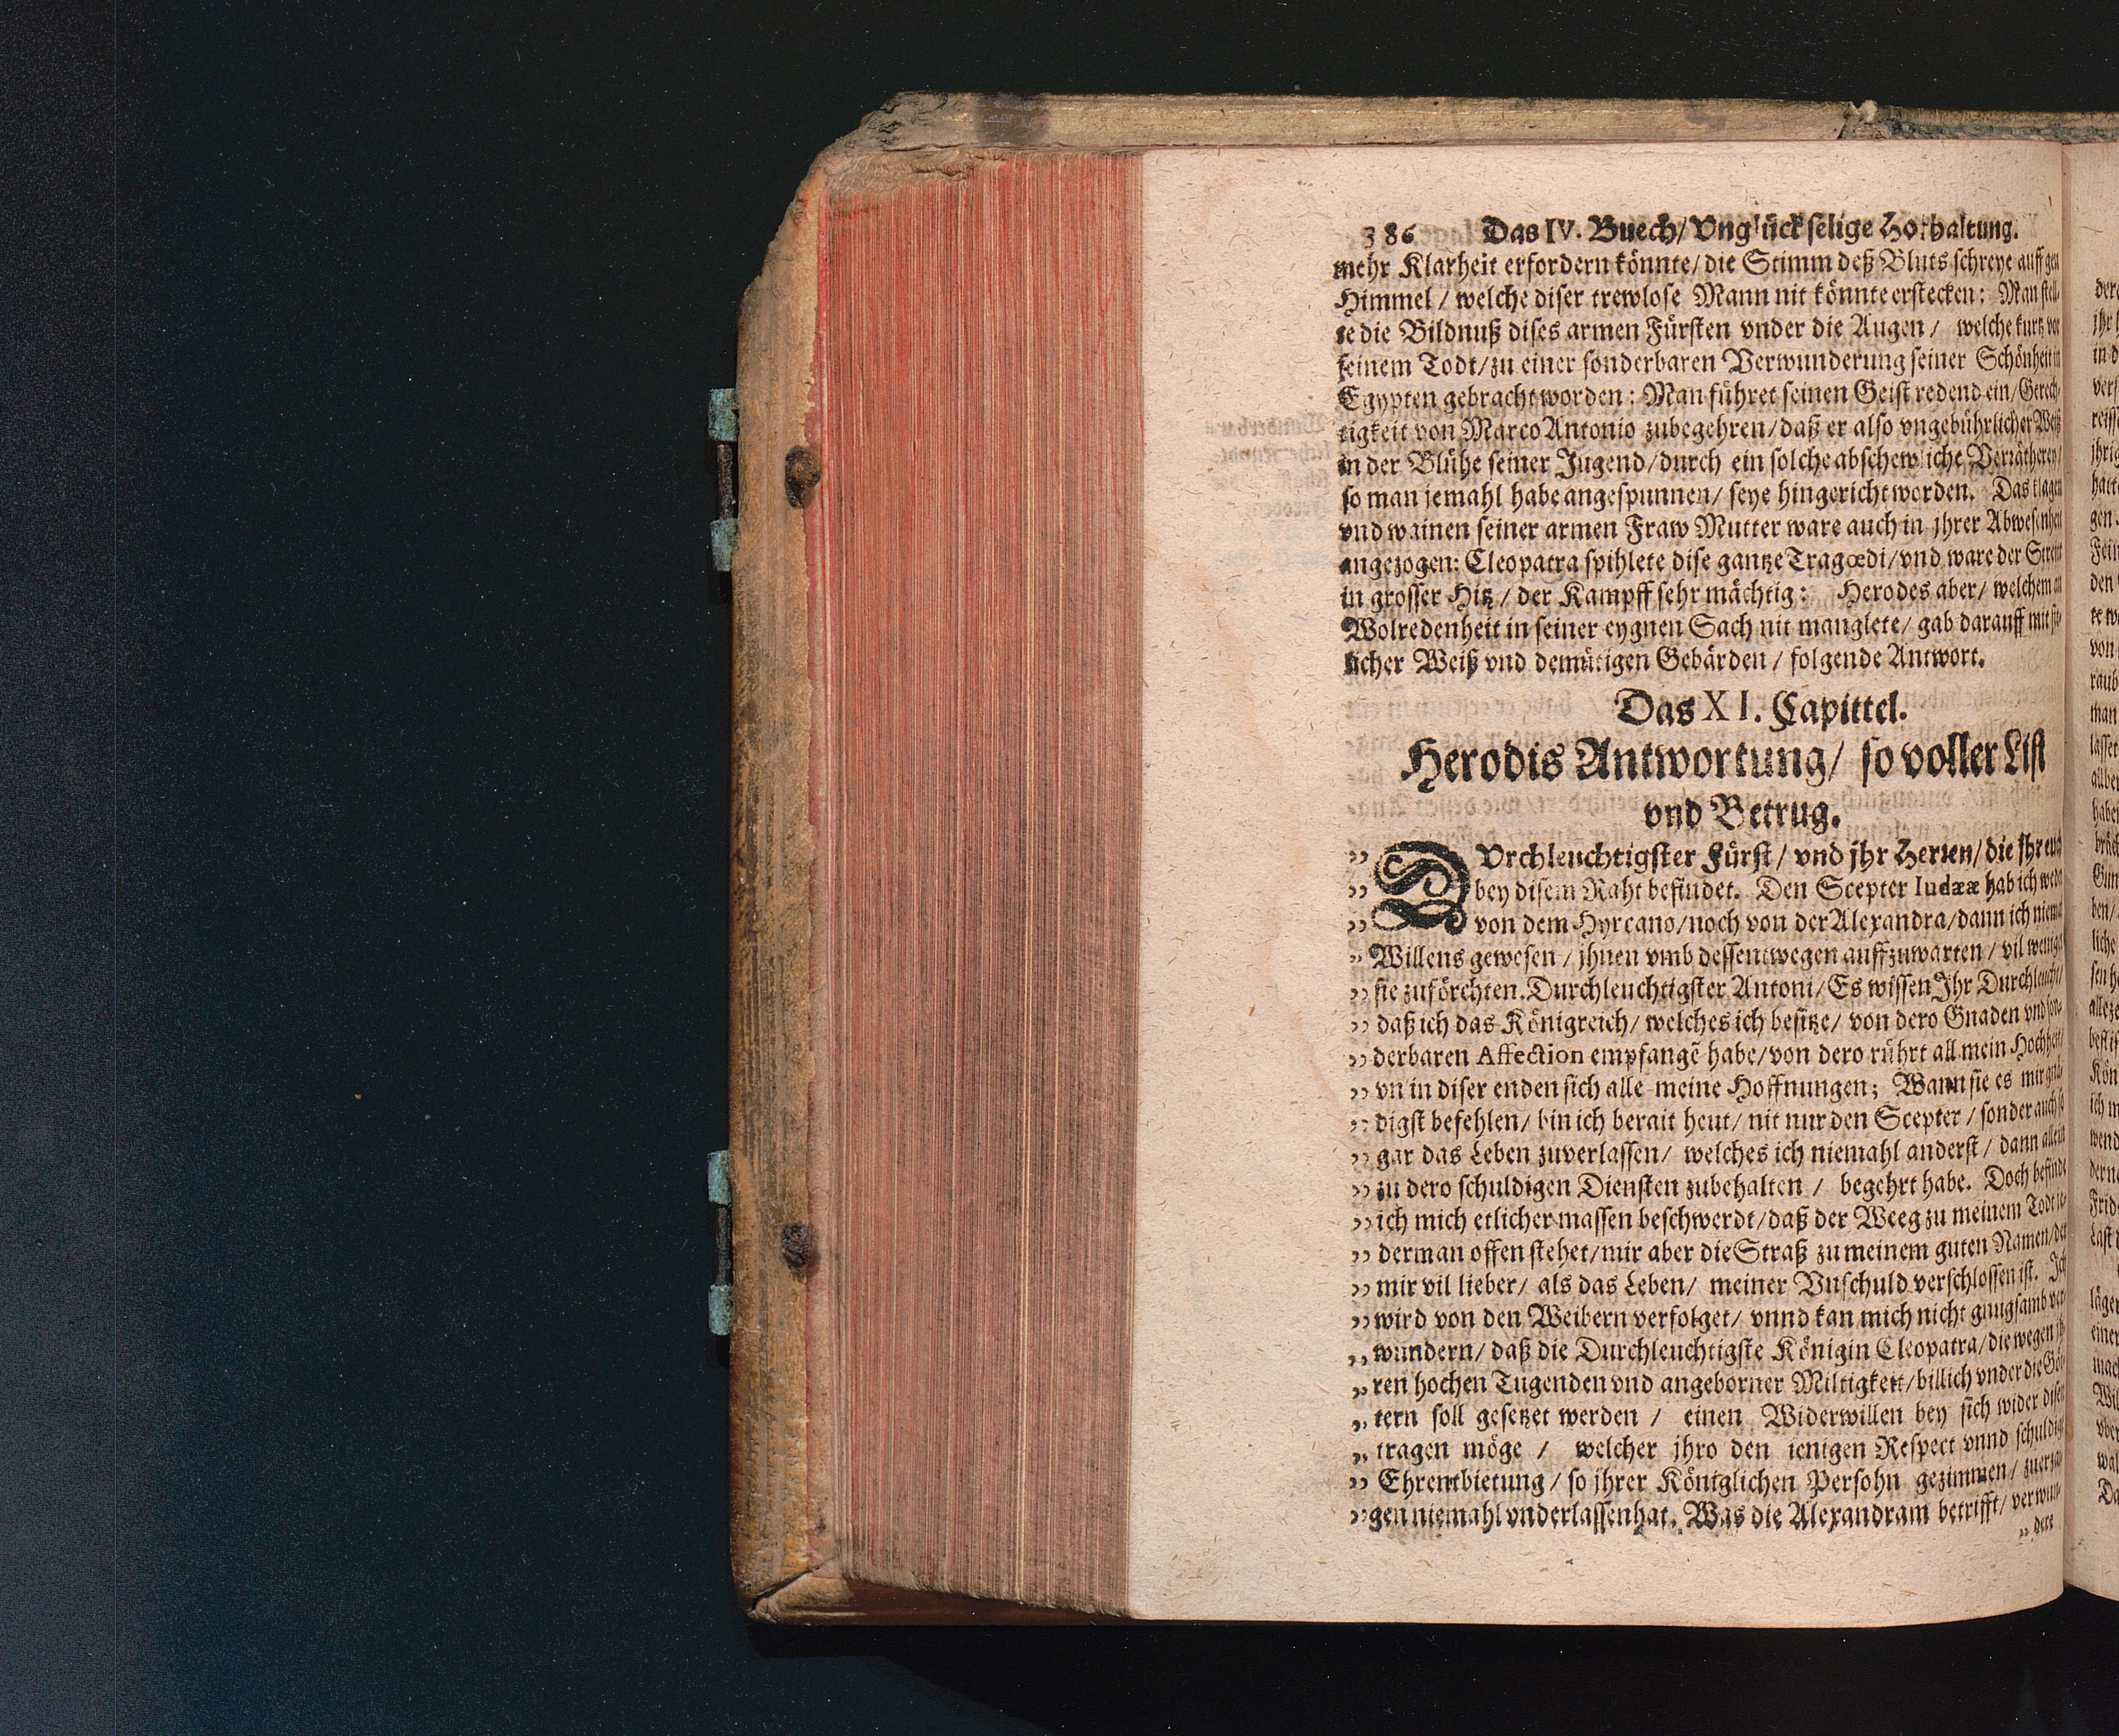 386 Das IV. Buech/ Vnglückselige Hofhaltung.
mehr Klarheit erfordern könnte/ die Stimm deß Bluts schreye auff gen
Himmel / welche diser trewlose Mann nit könnte erstecken: Man stell-
te die Bildnuß dises armen Fürsten vnder die Augen / welche kurtz vor
seinem Todt/ zu einer sonderbaren Verwunderung seiner Schönheit in
Egypten gebracht worden: Man führet seinen Geist redend ein/ Gerech-
tigkeit von Marco Antonio zubegehren/ daß er also vngebührlicher Weiß
in der Blühe seiner Jugend/ durch ein solche abschewliche Verrätherey/
so man jemahl habe angespunnen/ seye hingericht worden. Das klagen
vnd wainen seiner armen Fraw Mutter ware auch in jhrer Abwesenheit
angezogen: Cleopatra spihlete dise gantze Tragœdi/ vnd ware der Streit
in grosser Hitz / der Kampff sehr mächtig: Herodes aber/ welchem an
Wolredenheit in seiner eygnen Sach nit manglete/ gab darauff mit
licher Weiß vnd demütigen Gebärden / folgende Antwort.
Das XI. Capittel.
Herodis Antwortung/ so voller List
vnd Betrug.
„ DVrchleuchtigster Fürst/ vnd jhr Herren/ die jhr euch
„ bey disem Raht befindet. Den Scepter Iudææ hab ich weder
„ von dem Hyrcano/ noch von der Alexandra/ dann ich niemal
„ Willens gewesen / jhnen vmb dessentwegen auffzuwarten / vil weniger
„ sie zuförchten. Durchleuchtigster Antoni/ Es wissen Ihr Durchleucht/
„ daß ich das Königreich/ welches ich besitze/ von dero Gnaden vnd son-
„ derbaren Affection empfangẽ habe/ von dero rührt all mein Hochheit/
„ vn in diser enden sich alle meine Hoffnungen; Wann sie es mir gnä-
„ digst befehlen/ bin ich berait heut/ nit nur den Scepter / sonder auch so
„ gar das Leben zuverlassen/ welches ich niemahl anderst / dann allein
„ zu dero schuldigen Diensten zubehalten / begehrt habe. Doch befinde
„ ich mich etlicher massen beschwerdt/ daß der Weeg zu meinem Todt je-
„ derman offen stehet/ mir aber die Straß zu meinem guten Namen/ der
„ mir vil lieber/ als das Leben/ meiner Vnschuld verschlossen ist. Ich
„ wird von den Weibern verfolget/ vnnd kan mich nicht gnugsamb ver-
„ wundern/ daß die Durchleuchtigste Königin Cleopatra/ die wegen jh-
„ ren hochen Tugenden vnd angeborner Miltigkeit/ billich vnder die Göt-
„ tern soll gesetzet werden / einen Widerwillen bey sich wider disen
„ tragen möge / welcher jhro den ienigen Respect vnnd schuldige
„ Ehrentbietung / so jhrer Königlichen Persohn gezimmen / zuerzai-
„ gen niemahl vnderlassen hat. Was die Alexandram betrifft/ verwun-
„ dere